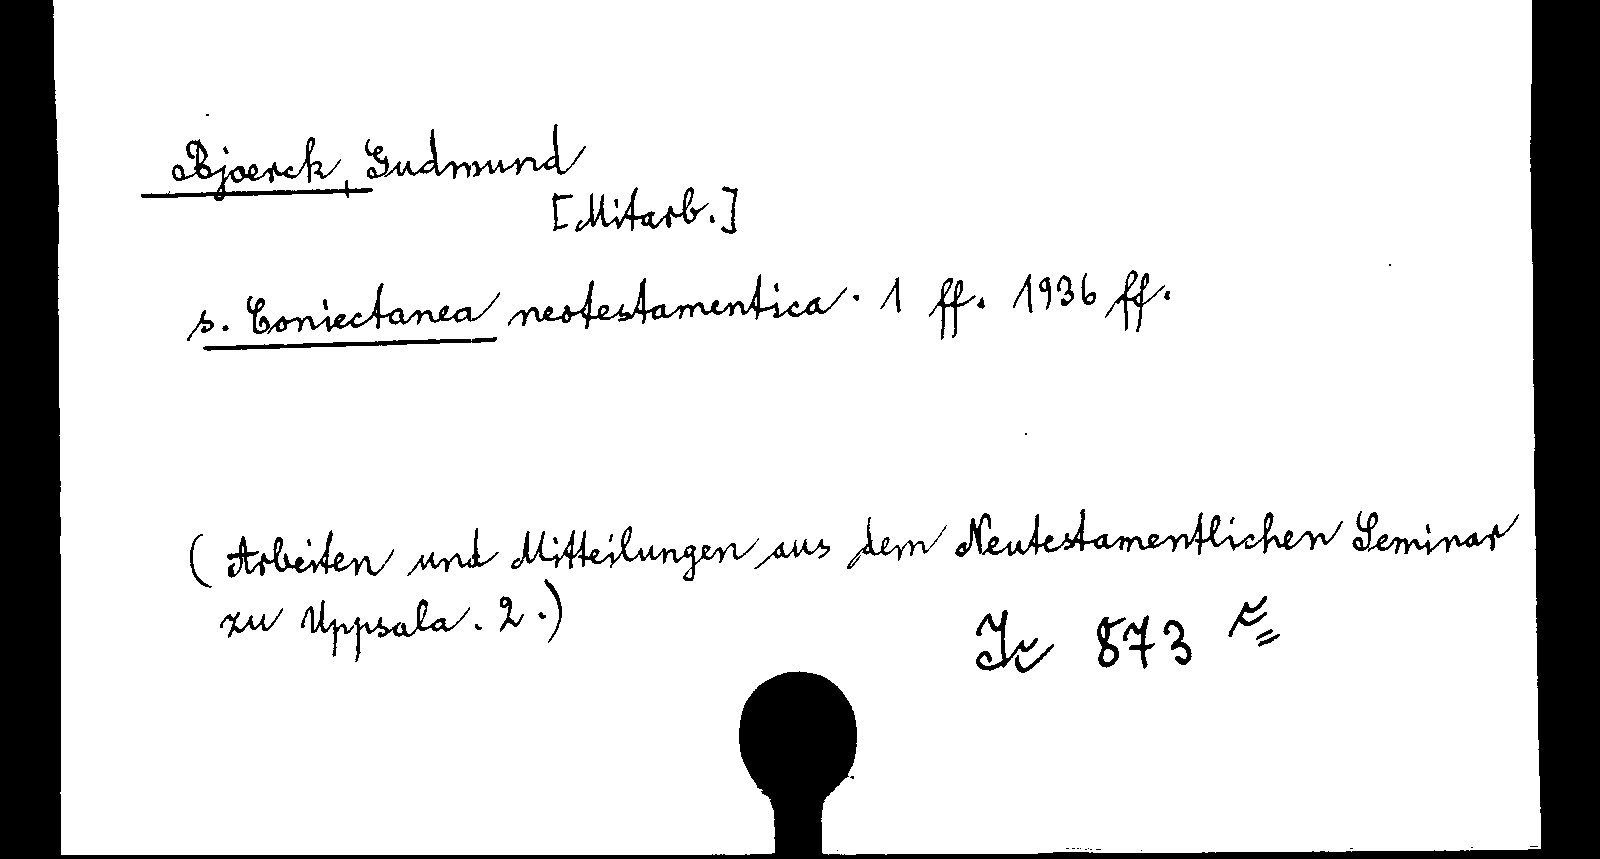 Bjoerck, Gudmund
[Mitarb.]
s. Coniectanea neotestamentica. 1 ff. 1936 ff.
(Arbeiten und Mitteilungen aus dem Neutestamentlichen Seminar
zu Uppsala. 2.)
873